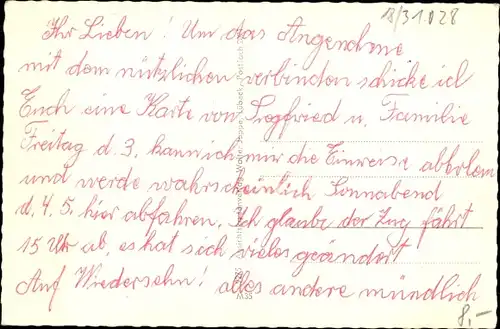 18/31.028
Ihr Lieben! Um das Angenehme
mit dem nützlichen verbinden schicke ich
Euch eine Karte von Siegfried u. Familie
Freitag d. 3. kann ich mir die Einreise abholen
und werde wahrscheinlich Sonnabend
d. 4. 5. hier abfahren. Ich glaube der Zug fährt
15 Uhr ab, es hat sich vieles geändert
Auf Wiedersehn! alles andere mündlich
8,-
M35